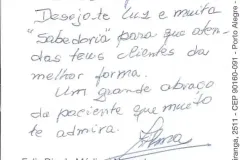 Desejo-te luz e muita
"Sabedoria" para que aten-
das teus clientes da
melhor forma.
Um grande abraço
da paciente que muito
te admira.
2511 - CEP 90160-091 - Porto Alegre -